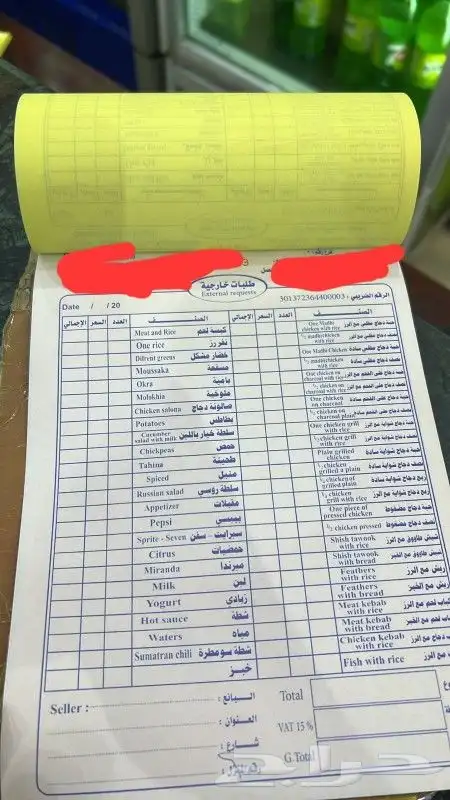 طلبات خارجية
External requests
Date / / 20
الرقم الضريبي : 301372364400003
الإجمالي السعر العدد الصنف الإجمالي الصنف
Meat and Rice كبسة لحم
One rice نفر رز
Difrent greens خضار مشكل
Moussaka مسقعة
Okra بامية
Molokhia ملوخية
Chicken salona صالونة دجاج
Potatoes بطاطس
Cucumber salad with milk سلطة خيار باللبن
Chickpeas حمص
Tahina طحينة
Spiced متبل
Russian salad سلطة روسي
Appetizer مقبلات
Pepsi بيبسي
Sprite - Seven سبرايت - سفن
Citrus حمضيات
Miranda ميرندا
Milk لبن
Yogurt زبادي
Hot sauce شطة
Waters مياه
Sumatran chili شطة سومطرة
خبز
One Madhi chicken with rice حبة دجاج مظبي مع الرز
½ madhi chicken with rice نصف دجاج مظبي مع الرز
One Madhi Chicken حبة دجاج مظبي سادة
½ madhi chicken نصف دجاج مظبي سادة
One chicken on charcoal with rice حبة دجاج على الفحم مع الرز
½ chicken on charcoal with rice نصف دجاج على الفحم مع الرز
One chicken on charcoal حبة دجاج على الفحم سادة
½ chicken on charcoal plain نصف دجاج على الفحم سادة
One chicken grill with rice حبة دجاج شواية مع الرز
½ chicken grill with rice نصف دجاج شواية مع الرز
Plain grilled chicken حبة دجاج شواية سادة
½ chicken grilled a plain نصف دجاج شواية سادة
¼ chicken of grilled plain ربع دجاج شواية سادة
¼ chicken grill with rice ربع دجاج شواية مع الرز
One piece of pressed chicken حبة دجاج مضغوط
½ chicken pressed نصف دجاج مضغوط
Shish tawook with rice شيش طاووق مع الرز
Shish tawook with bread شيش طاووق مع الخبز
Feathers with rice ريش مع الرز
Feathers with bread ريش مع الخبز
Meat kebab with rice كباب لحم مع الرز
Meat kebab with bread كباب لحم مع الخبز
Chicken kebab with rice دجاج مع الرز
Fish with rice مع الرز
Seller : البائع :
العنوان :
شارع :
رقم المنزل :
Total
VAT 15 %
G.Total
حراج